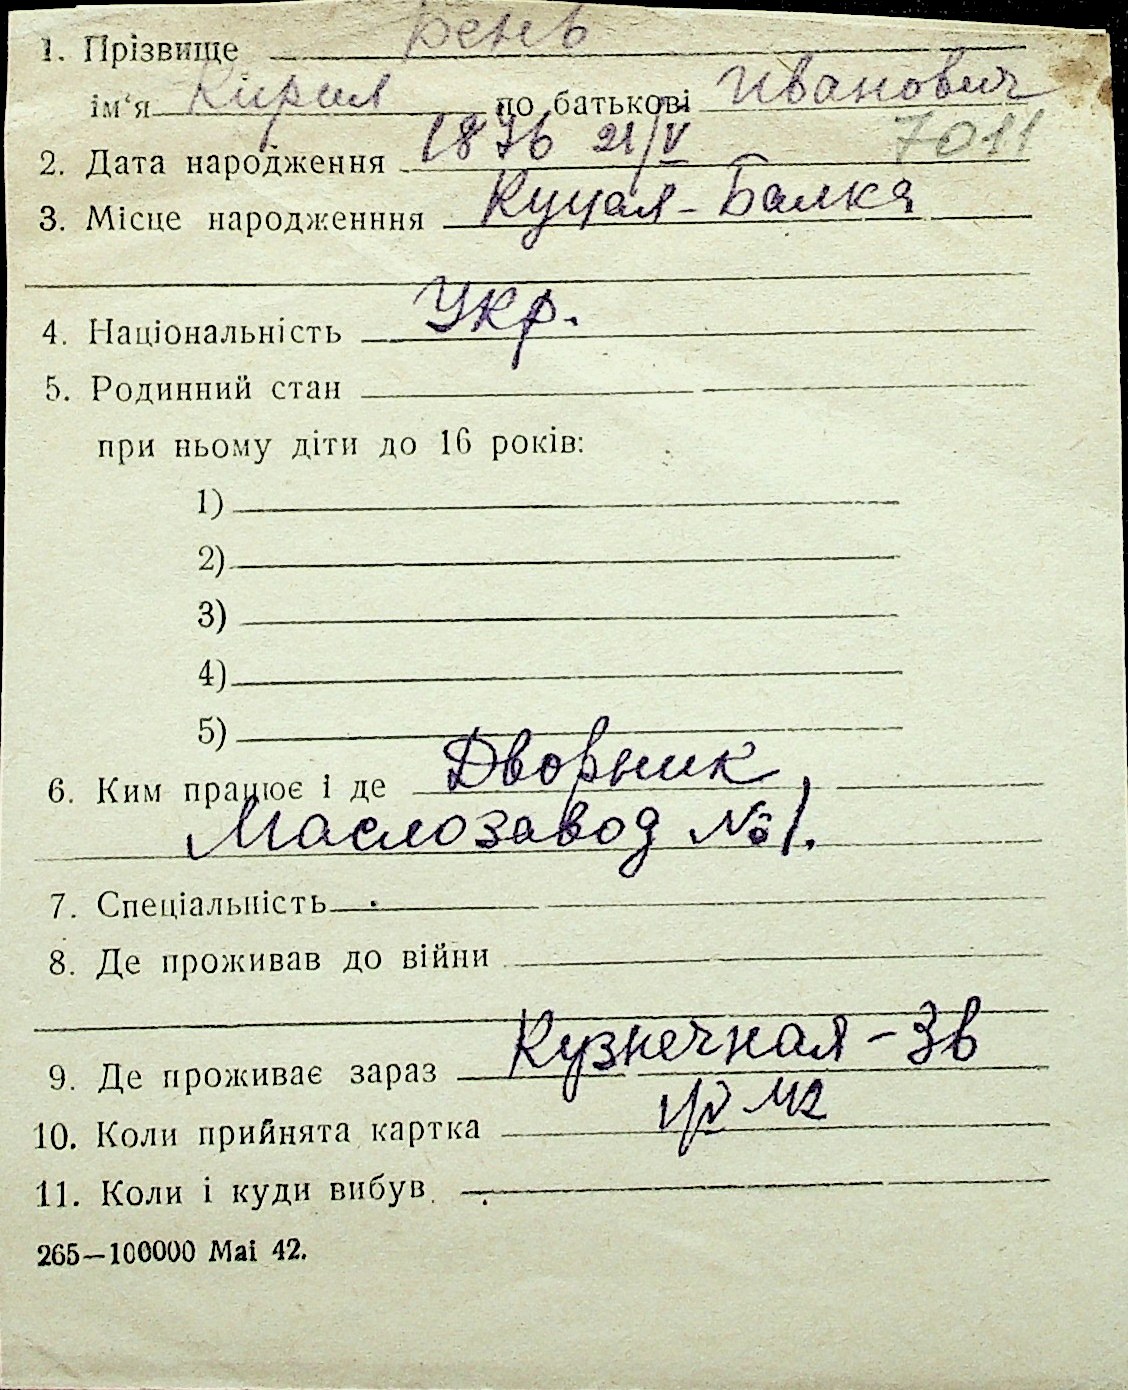 1. Прізвище Бень
ім'я Кирил по батькові Иванович
2. Дата народження 1876 21/V 7011
3. Місце народженння Куцая-Балка
4. Національність Укр.
5. Родинний стан
при ньому діти до 16 років:
1)
2)
3)
4)
5)
6. Ким працює і де Дворник
Маслозавод №1.
7. Спеціальність
8. Де проживав до війни
9. Де проживає зараз Кузнечная-3в
10. Коли прийнята картка
11. Коли і куди вибув
265—100000 Маі 42.